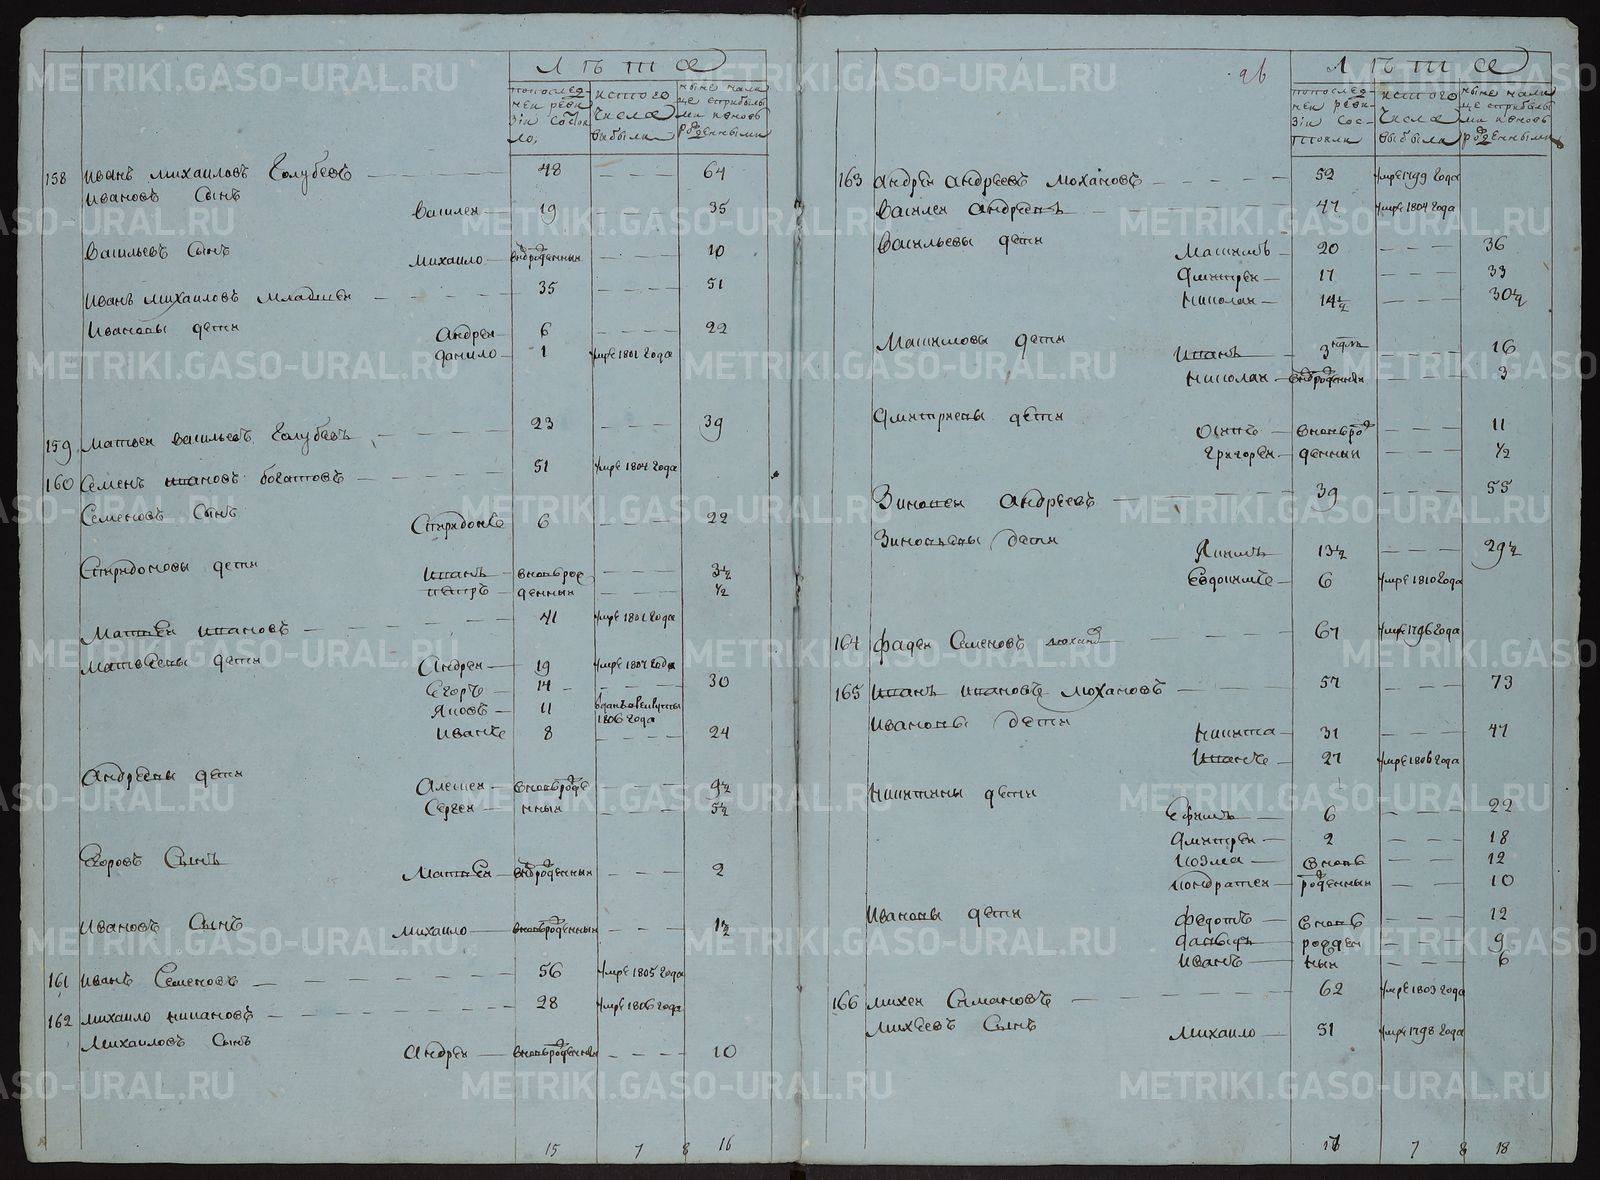 Лѣта
попослед-
ней реви
зіи состоя
ло,
истого
числа
выбыли
ныне нали
це сприбылы
ми и вновь
рожденными
158 Иванъ михаиловъ Голубевъ 48 64
Ивановъ Сынъ
Василеи 19 35
Васильевъ Сынъ
михаило вновьрожденныи 10
Иванъ михаиловъ младшеи 35 51
Ивановы дети
Андреи 6 22
данило 1 умре 1801 года
159 матвеи васильевъ Голубевъ 23 39
160 Семенъ ивановъ богатовъ 51 умре 1804 года
Семеновъ Сынъ
Спиридонъ 6 22
Спиридоновы дети
иванъ вновьрож 3½
петръ денныи ½
матвеи ивановъ 41 умре 1801 года
матвеевы дети
Андреи 19 умре 1807 года
Егоръ 14 30
Яковъ 11 1806 года
иванъ 8 24
Андреевы дети
Алексеи вновьрожде 9½
Сергеи нныи 5½
Егоровъ Сынъ
матвеи вновьрожденныи 2
Ивановъ Сынъ
михаило вновьрожденныи 1½
161 иванъ Семеновъ 56 умре 1805 года
162 михаило ивановъ 28 умре 1806 года
михаиловъ Сынъ
Андреи вновьрожденныи 10
15 7 8 16
26
Лѣта
попослед-
неи реви-
зіи сос-
тояли
истого
числа
выбыли
ныне нали
це сприбылы
ми и вновь
рожденными
163 Андреи Андреевъ мохановъ 52 умре 1799 года
василеи Андреевъ 47 умре 1804 года
васильевы дети
максимъ 20 36
дмитреи 17 33
николаи 14½ 30½
максимовы дети
иванъ 3 недѣль 16
николаи вновьрожденныи 3
дмитриевы дети
Осипъ вновьрож 11
григореи денныи ½
Зиновеи Андреевъ 39 55
Зиновьевы дети
Якимъ 13½ 29½
Евдокимъ 6 умре 1810 года
164 фадеи Семеновъ мохано 67 умре 1796 года
165 иванъ ивановъ мохановъ 57 73
Ивановы дети
никита 31 47
иванъ 27 умре 1806 года
никитины дети
Ефимъ 6 22
дмитреи 2 18
козма вновь 12
кондратеи рожденныи 10
Ивановы дети
федотъ вновь 12
давыдъ рожден 9
иванъ ныи 6
166 михеи Симановъ 62 умре 1803 года
михеевъ Сынъ
михаило 51 умре 1798 года
16 7 8 18
METRIKI.GASO-URAL.RU